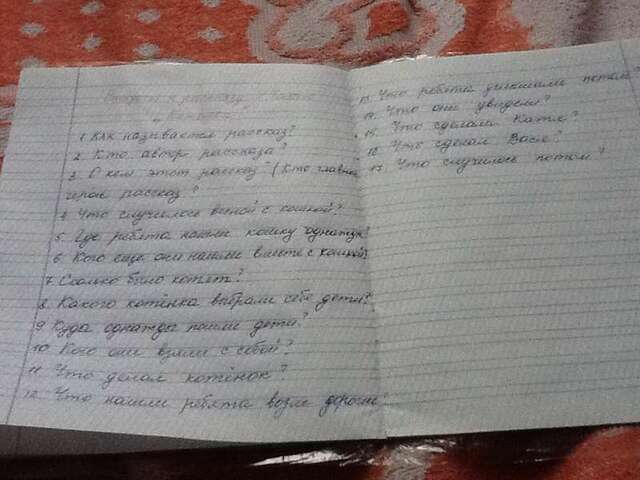 Вопросы к рассказу
1. Как называется рассказ?
2. Кто автор рассказа?
3. О ком этот рассказ? (Кто главный
герой рассказ?
4. Что случилось весной с кошкой?
5. Где ребята нашли кошку однажды?
6. Кого еще они нашли вместе с кошкой?
7. Сколько было котят?
8. Какого котёнка выбрали себе дети?
9. Куда однажды пошли дети?
10. Кого они взяли с собой?
11. Что делал котёнок?
12. Что нашли ребята возле дороги?
13. Что ребята услышали потом?
14. Что они увидели?
15. Что сделала Катя?
16. Что сделал Вася?
17. Что случилось потом?